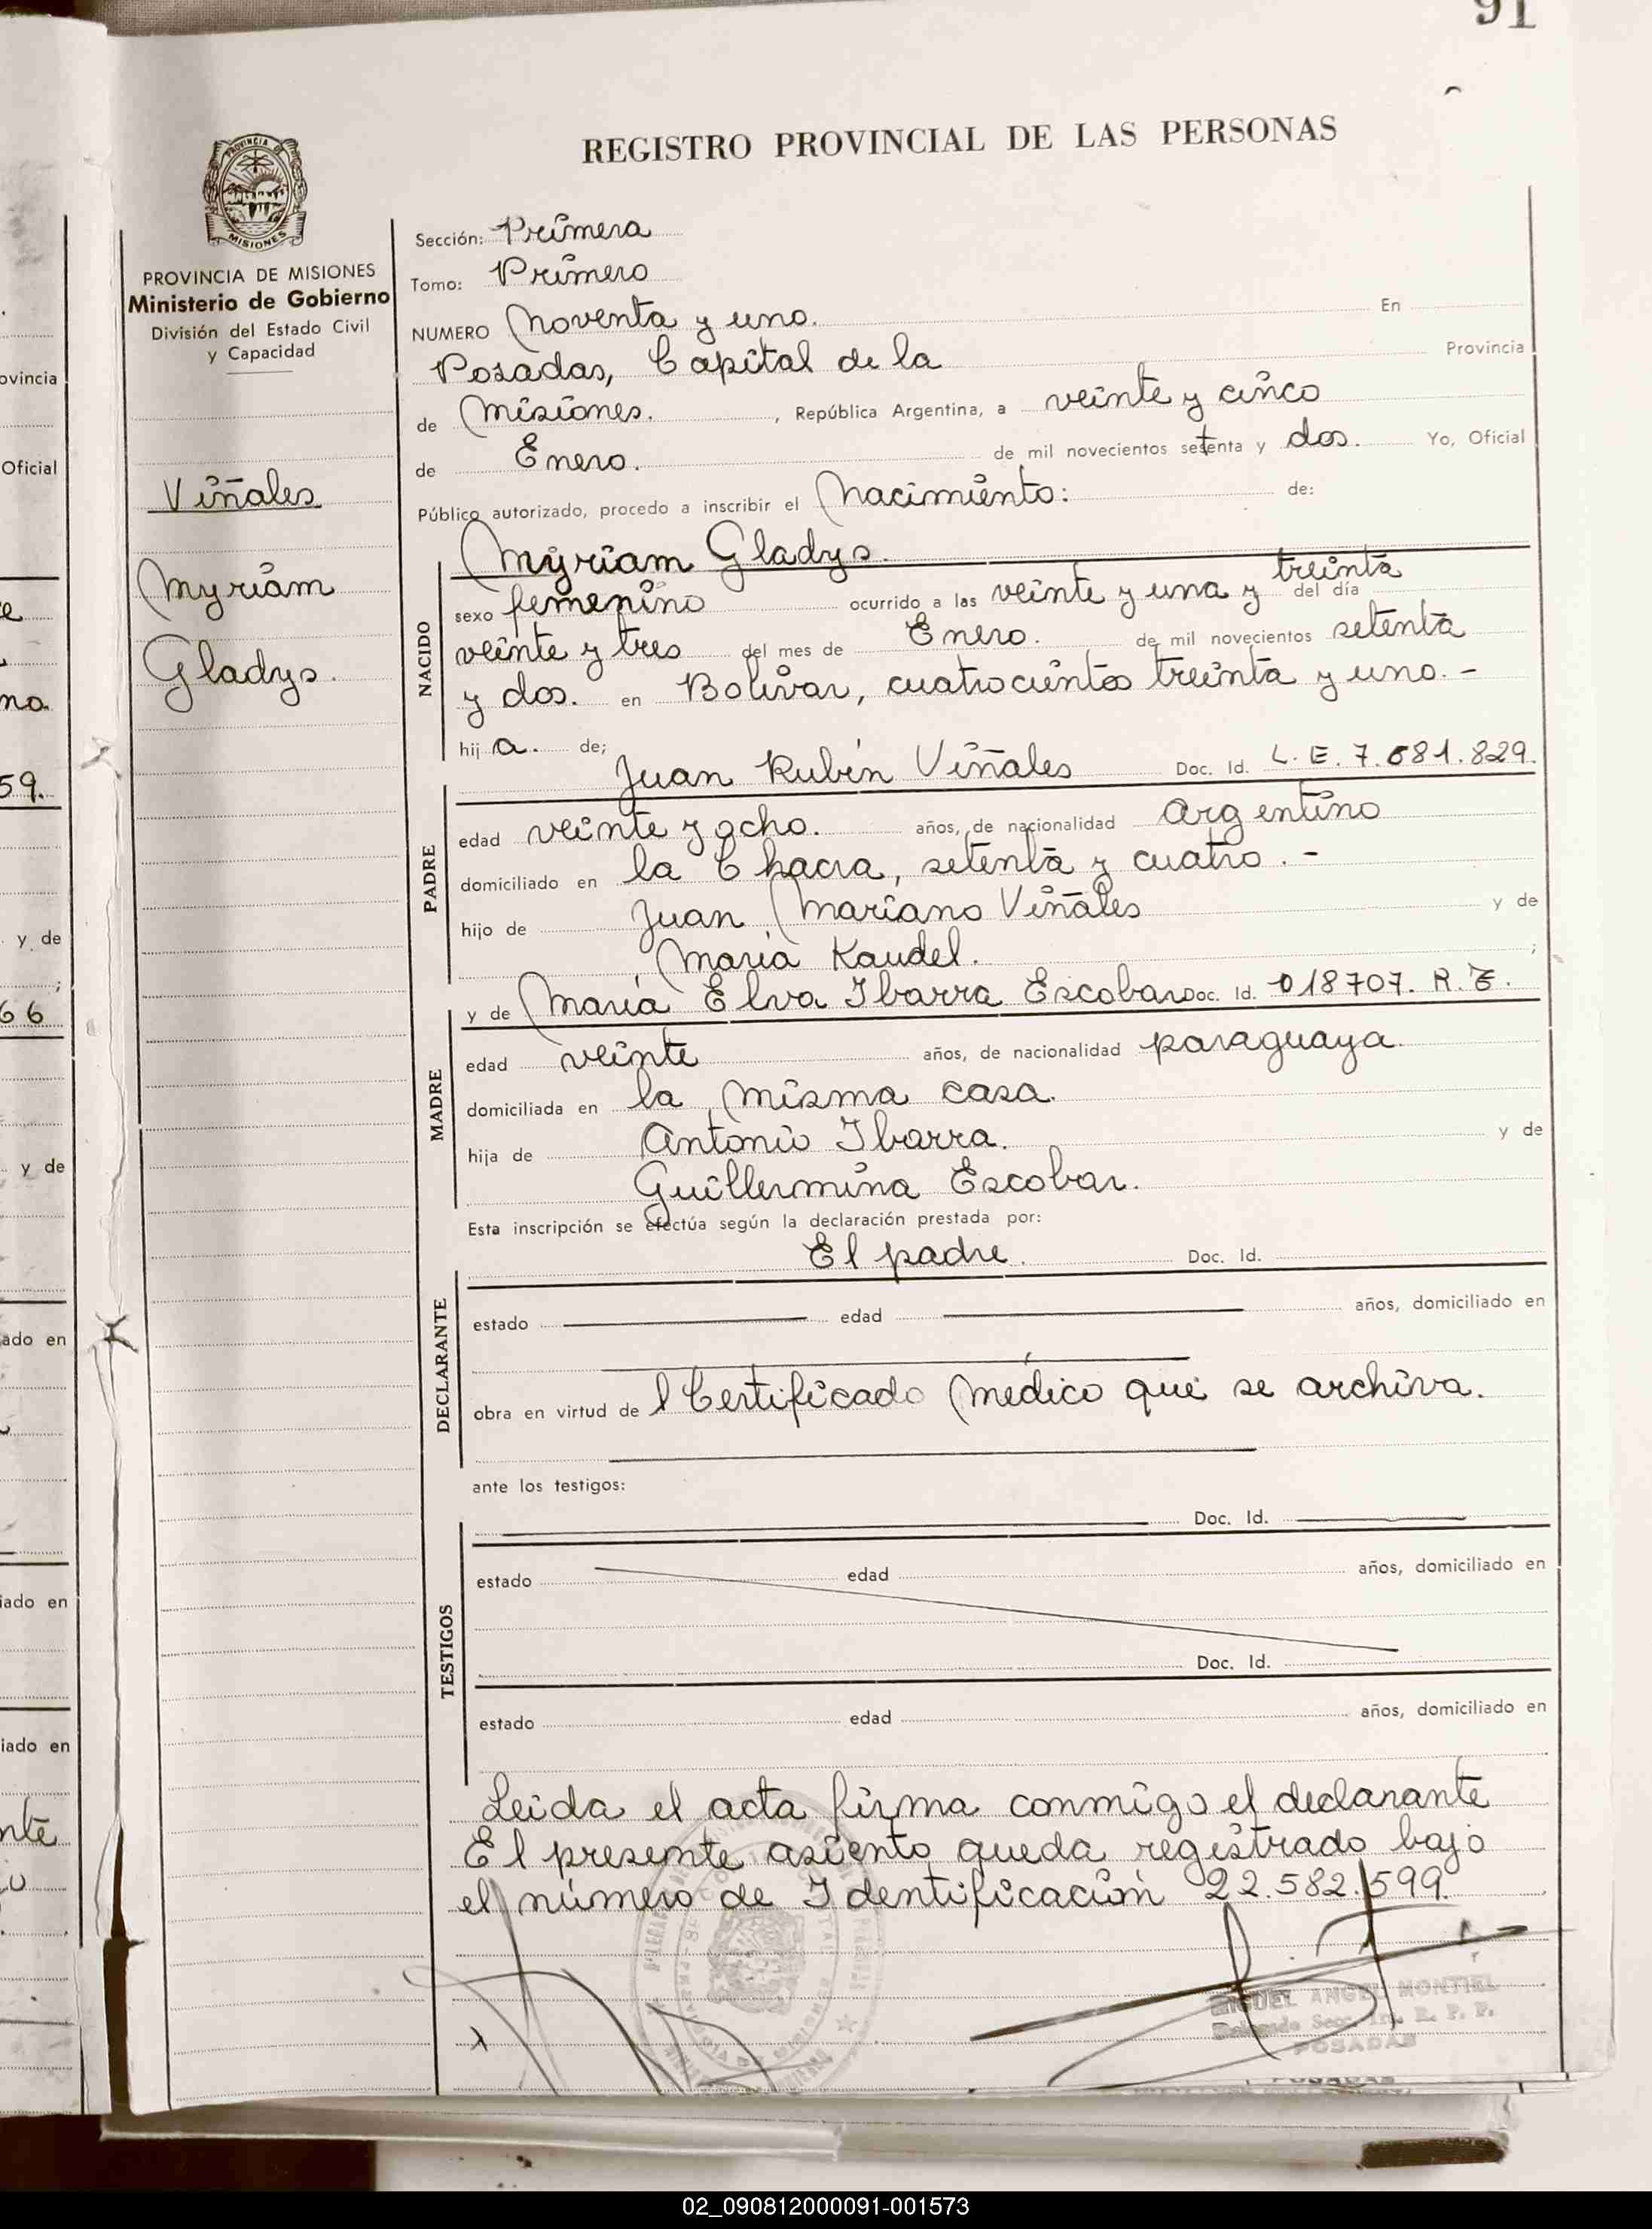 91
REGISTRO PROVINCIAL DE LAS PERSONAS
PROVINCIA DE MISIONES
PROVINCIA DE MISIONES
Ministerio de Gobierno
División del Estado Civil
y Capacidad
Viñales
Myriam
Gladys.
Sección: Primera
Tomo: Primero
NUMERO Noventa y uno. En
Posadas, Capital de la Provincia
de Misiones. , República Argentina, a veinte y cinco
de Enero. de mil novecientos setenta y dos. Yo, Oficial
Público autorizado, procedo a inscribir el Nacimiento: de:
Myriam Gladys.
NACIDO
sexo femenino ocurrido a las veinte y una y treinta del día
veinte y tres del mes de Enero. de mil novecientos setenta
y dos. en Bolívar, cuatrocientos treinta y uno. -
hij a. de;
Juan Rubén Viñales Doc. Id. L. E. 7.681.829.
PADRE
edad veinte y ocho. años, de nacionalidad Argentino
domiciliado en la Chacra, setenta y cuatro. -
hijo de Juan Mariano Viñales y de
María Kaudel. ;
y de María Elva Ibarra Escobar Doc. Id. 018707. R. E.
MADRE
edad veinte años, de nacionalidad paraguaya.
domiciliada en la misma casa.
hija de Antonio Ibarra. y de
Guillermina Escobar.
Esta inscripción se efectúa según la declaración prestada por:
El padre. Doc. Id.
DECLARANTE
estado edad años, domiciliado en
obra en virtud de l Certificado Médico que se archiva.
ante los testigos:
Doc. Id.
TESTIGOS
estado edad años, domiciliado en
Doc. Id.
estado edad años, domiciliado en
Leida el acta firma conmigo el declarante
El presente asiento queda registrado bajo
el número de Identificación 22.582.599.
MIGUEL ANGEL MONTIEL
Delegado Secc. 1ra. R. P. P.
POSADAS
02_090812000091-001573